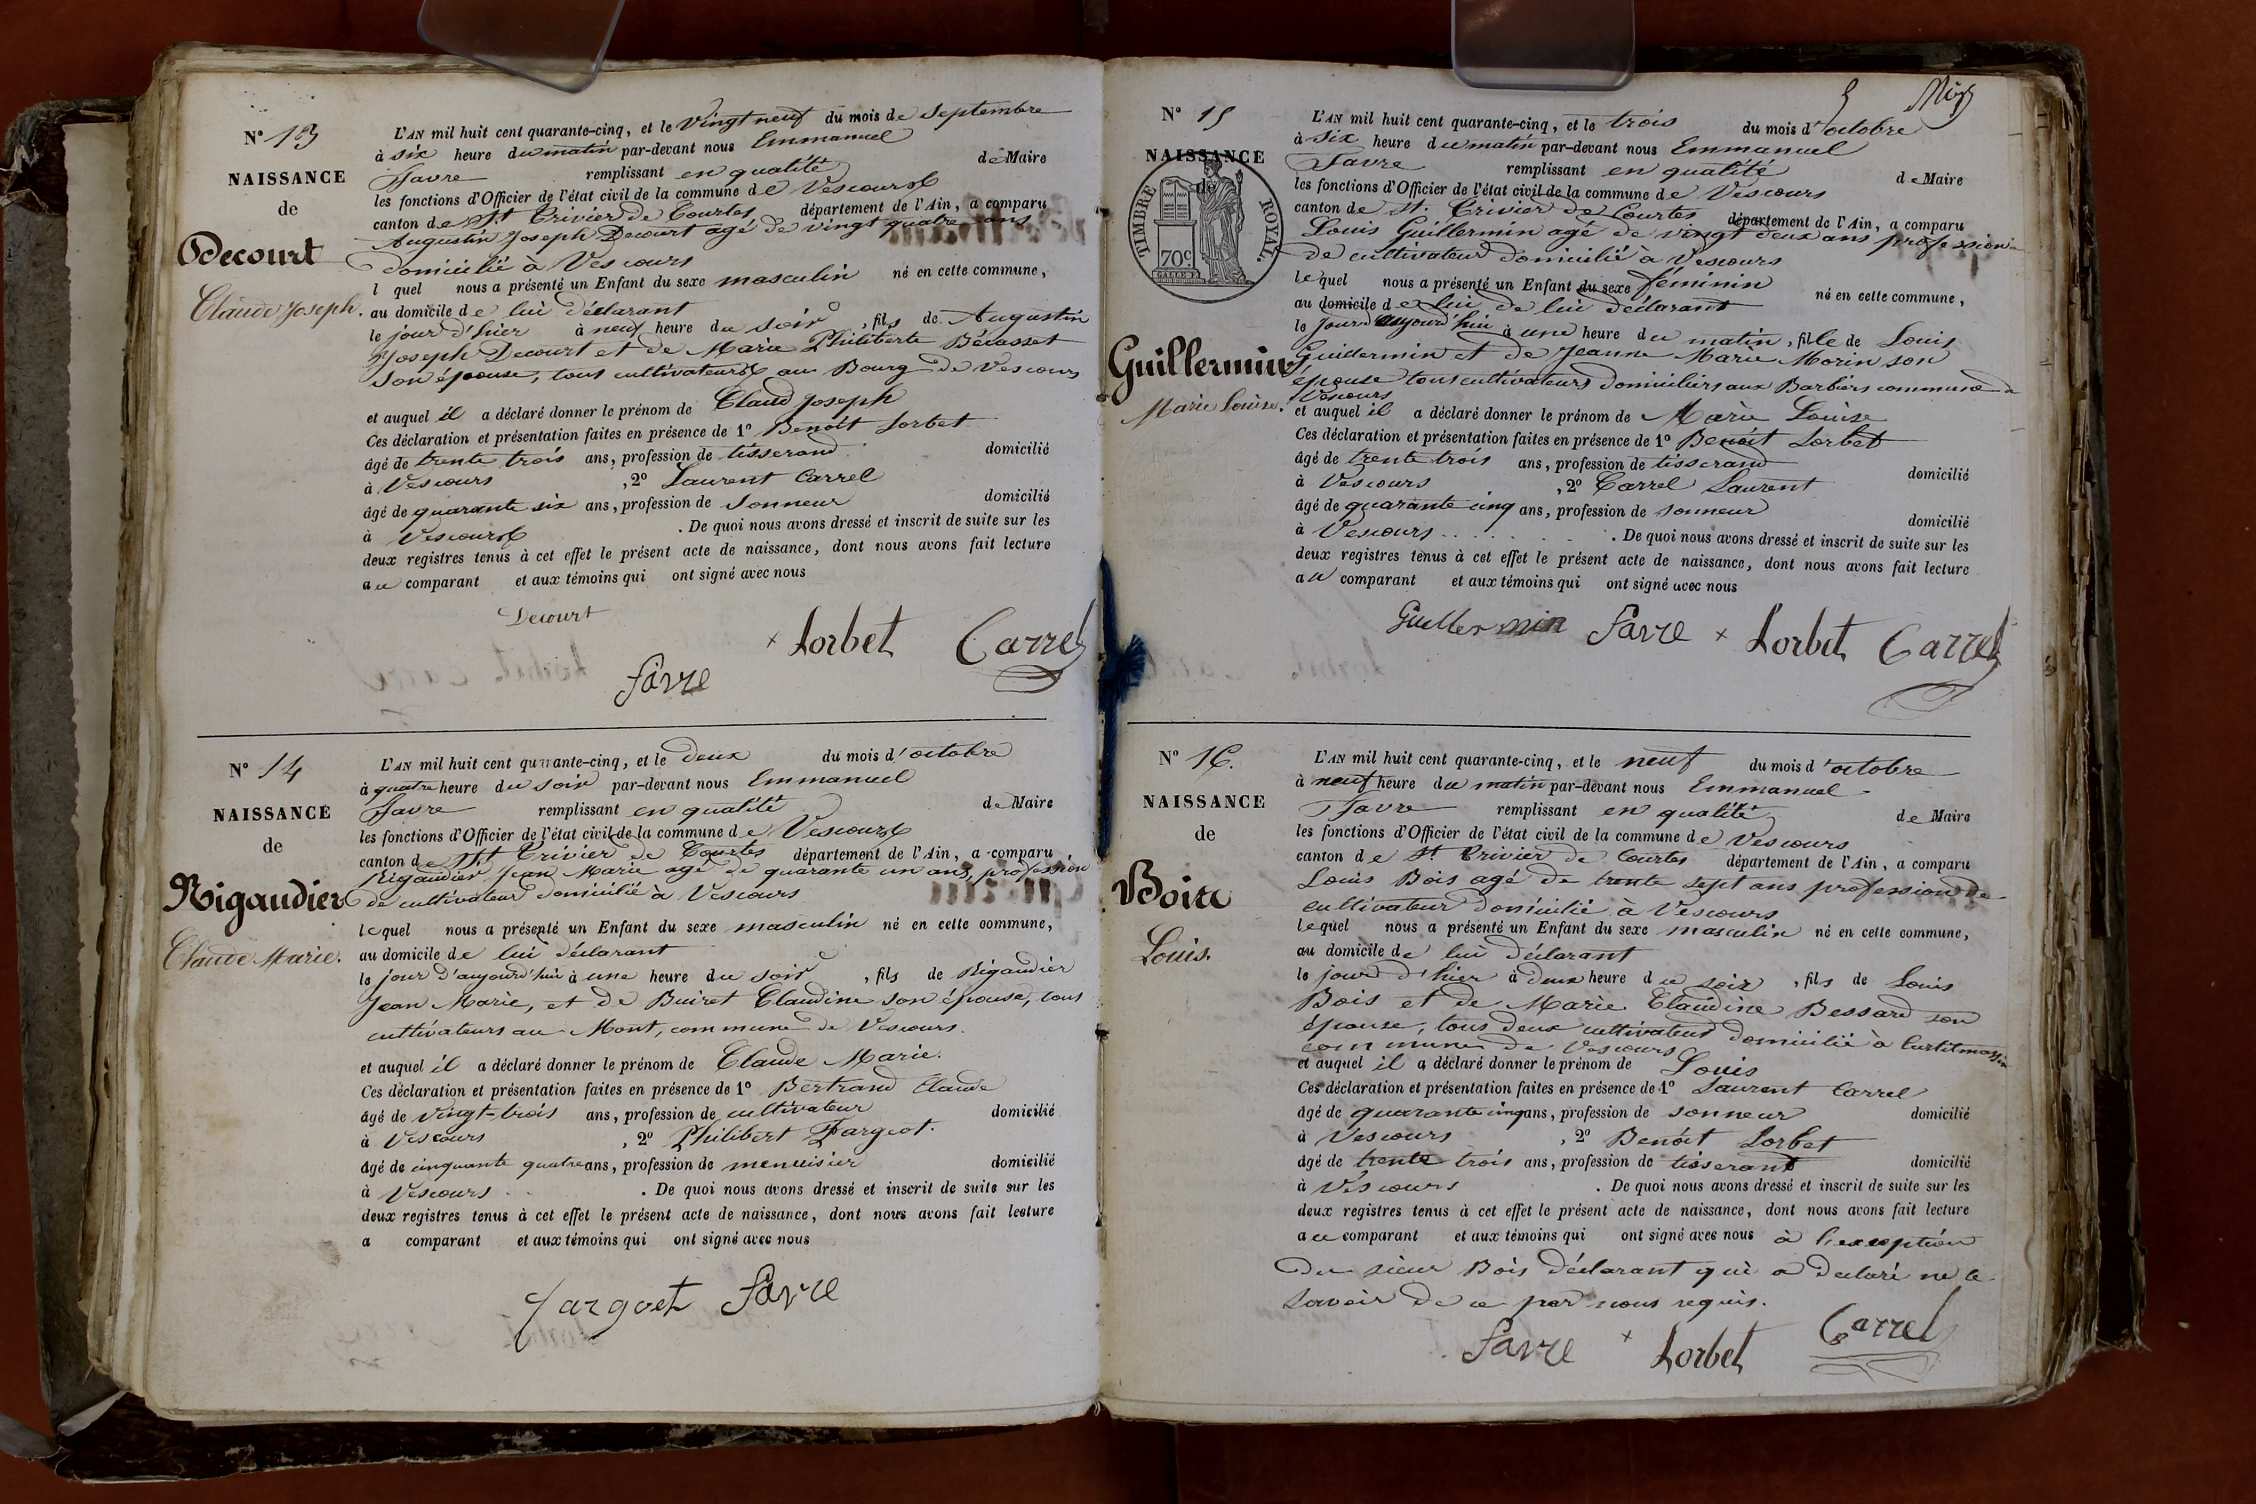 N° 13
NAISSANCE
de
Decourt
Claude Joseph.
L'AN mil huit cent quarante-cinq, et le vingt neuf du mois de septembre
à six heure du matin par-devant nous Emmanuel
Favre remplissant en qualité de Maire
les fonctions d'Officier de l'état civil de la commune de Vescours
canton de St Trivier de Courtes département de l'Ain, a comparu
Augustin Joseph Decourt agé de vingt quatre ans
domicilié à Vescours
l quel nous a présenté un Enfant du sexe masculin né en cette commune,
au domicile de lui déclarant
le jour d'hier à neuf heure du soir, fils de Augustin
Joseph Decourt et de Marie Philiberte Bécasset
son épouse, tous cultivateurs au Bourg de Vescours
et auquel il a déclaré donner le prénom de Claud Joseph
Ces déclaration et présentation faites en présence de 1° Benoît Lorbet
âgé de trente trois ans, profession de tisserand domicilié
à Vescours, 2° Laurent Carrel
âgé de quarante six ans, profession de sonneur domicilié
à Vescours. De quoi nous avons dressé et inscrit de suite sur les
deux registres tenus à cet effet le présent acte de naissance, dont nous avons fait lecture
au comparant et aux témoins qui ont signé avec nous
Decourt
x Lorbet Carrel
Favre
N° 14
NAISSANCE
de
Rigaudier
Claude Marie.
L'AN mil huit cent quarante-cinq, et le deux du mois d'octobre
à quatre heure du soir par-devant nous Emmanuel
Favre remplissant en qualité de Maire
les fonctions d'Officier de l'état civil de la commune de Vescours
canton de St Trivier de Courtes département de l'Ain, a comparu
Rigaudier Jean Marie agé de quarante un ans, profession
de cultivateur domicilié à Vescours
lequel nous a présenté un Enfant du sexe masculin né en cette commune,
au domicile de lui déclarant
le jour d'aujourd'hui à une heure du soir, fils de Rigaudier
Jean Marie, et de Buiret Claudine son épouse, tous
cultivateurs au Mont, commune de Vescours.
et auquel il a déclaré donner le prénom de Claude Marie.
Ces déclaration et présentation faites en présence de 1° Bertrand Claude
âgé de vingt-trois ans, profession de cultivateur domicilié
à Vescours, 2° Philibert Fargeot.
âgé de cinquante quatre ans, profession de menuisier domicilié
à Vescours. De quoi nous avons dressé et inscrit de suite sur les
deux registres tenus à cet effet le présent acte de naissance, dont nous avons fait lecture
a comparant et aux témoins qui ont signé avec nous
fargoet Favre
N° 15
NAISSANCE
de
TIMBRE ROYAL.
70c
Guillermin
Marie Louise.
L'AN mil huit cent quarante-cinq, et le trois du mois d'octobre
à six heure du matin par-devant nous Emmanuel
Favre remplissant en qualité de Maire
les fonctions d'Officier de l'état civil de la commune de Vescours
canton de St. Trivier de Courtes département de l'Ain, a comparu
Louis Guillermin agé de vingt deux ans profession
de cultivateur domicilié à Vescours
lequel nous a présenté un Enfant du sexe féminin né en cette commune,
au domicile de lui de lui déclarant
le jour d'aujourd'hui à une heure du matin, fille de Louis
Guillermin et de Jeanne Marie Morin son
épouse tous cultivateurs domiciliés aux Barbiers commune de
Vescours
et auquel il a déclaré donner le prénom de Marie Louise
Ces déclaration et présentation faites en présence de 1° Benoît Lorbet
âgé de trente trois ans, profession de tisserand domicilié
à Vescours, 2° Carrel Laurent
âgé de quarante cinq ans, profession de sonneur domicilié
à Vescours. De quoi nous avons dressé et inscrit de suite sur les
deux registres tenus à cet effet le présent acte de naissance, dont nous avons fait lecture
au comparant et aux témoins qui ont signé avec nous
Guillermin Favre x Lorbet Carrel
N° 16.
NAISSANCE
de
Boire
Louis.
L'AN mil huit cent quarante-cinq, et le neuf du mois d'octobre
à neuf heure du matin par-devant nous Emmanuel
Favre remplissant en qualité de Maire
les fonctions d'Officier de l'état civil de la commune de Vescours
canton de St Trivier de Courtes département de l'Ain, a comparu
Louis Bois agé de trente sept ans profession de
cultivateur domicilié à Vescours
lequel nous a présenté un Enfant du sexe masculin né en cette commune,
au domicile de lui déclarant
le jour d'hier à deux heure du soir, fils de Louis
Bois et de Marie Claudine Bessard son
épouse, tous deux cultivateurs domicilié à
commune de Vescours
et auquel il a déclaré donner le prénom de Louis
Ces déclaration et présentation faites en présence de 1° Laurent Carrel
âgé de quarante cinq ans, profession de sonneur domicilié
à Vescours, 2° Benoît Lorbet
âgé de trente trois ans, profession de tisserant domicilié
à Vescours. De quoi nous avons dressé et inscrit de suite sur les
deux registres tenus à cet effet le présent acte de naissance, dont nous avons fait lecture
au comparant et aux témoins qui ont signé avec nous à l'exception
du sieur Bois déclarant qui a declaré ne le
savoir de ce par nous requis.
Favre x Lorbet Carrel